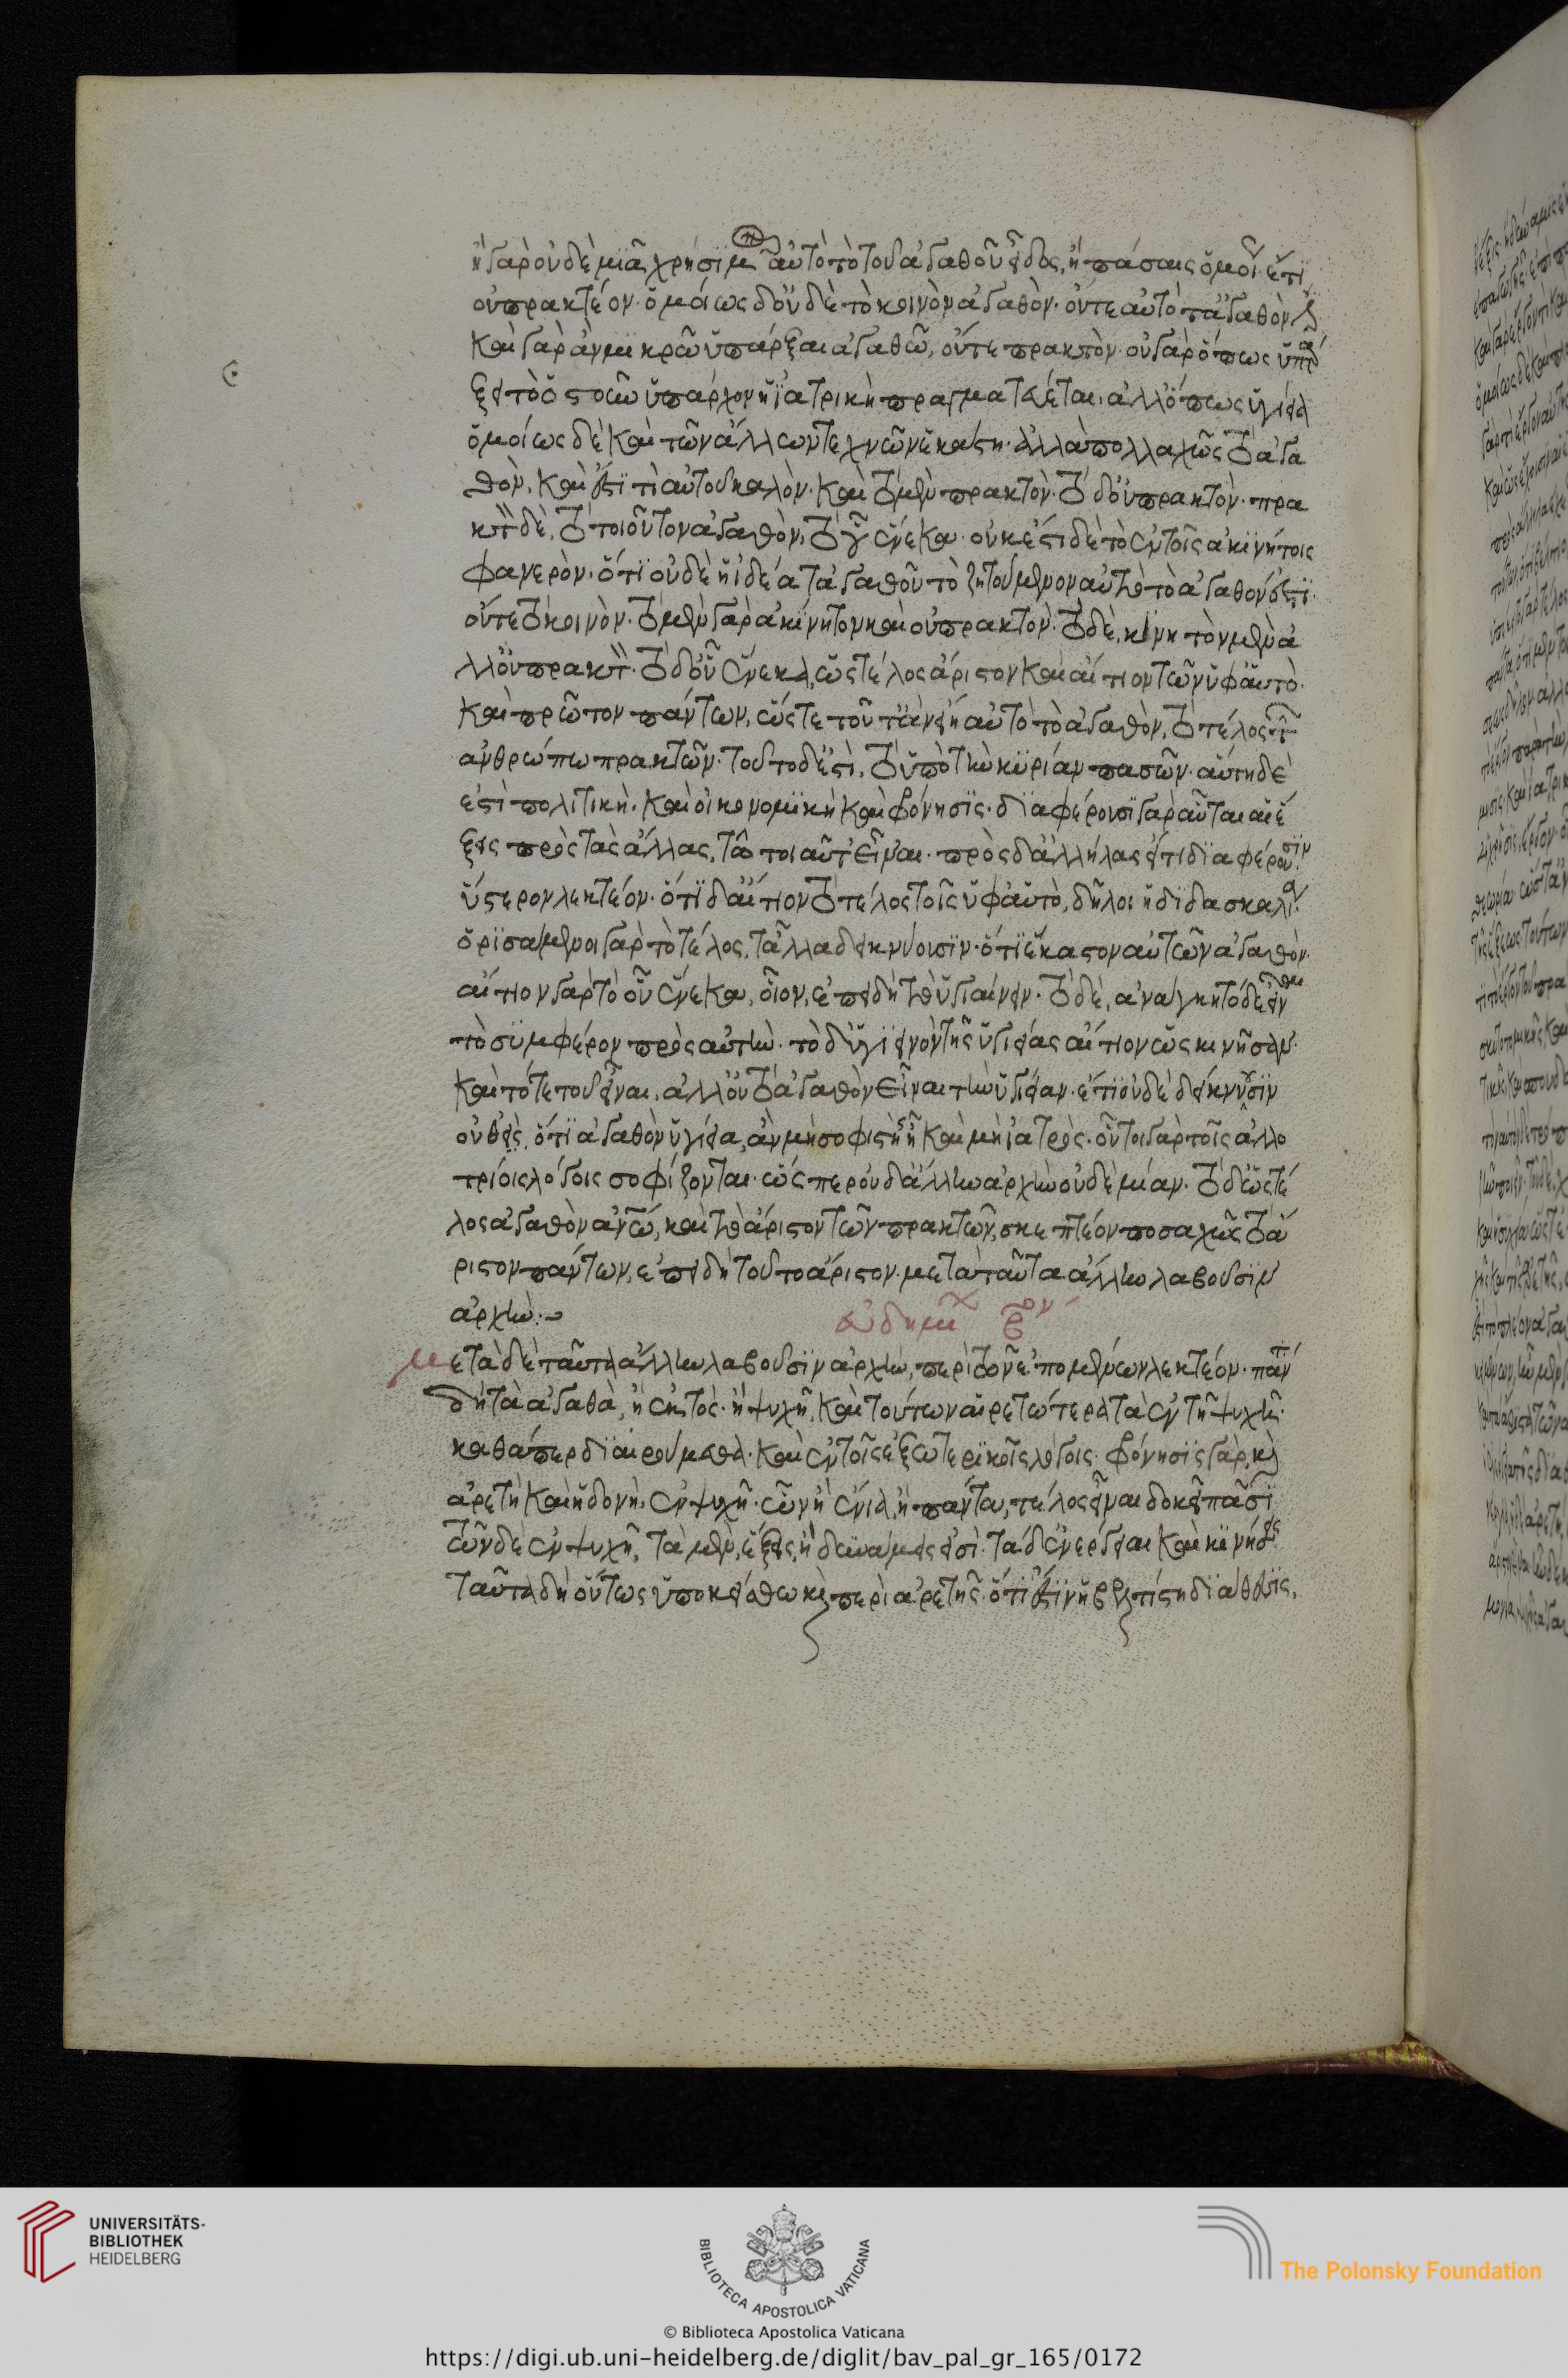 ἢ γὰρ οὐδὲ μϊᾶ χρήσϊμ αὐτὸ τὸ τοῦ ἀγαθοῦ εἶδος, ἢ πάσαις ὅμοι ἔτι
οὐ πρακτέον· ὁμοίως δ οὐδὲ τὸ κοινὸν ἀγαθὸν· οὔτε αὐτὸ τἀγαθὸν
καὶ γὰρ ἂν μικρῶ ὑπάρξαι ἀγαθῶ, οὔτε πρακτὸν· οὐ γὰρ ὅπως ὑπάρ
ξει τὸ ὁτοοῦν ὑπάρχον ἡ ϊατρικὴ πραγματεύεται· ἀλλ ὅπως ὑγίεια
ὁμοίως δὲ καὶ τῶν ἄλλων τεχνῶν ἑκάστη· ἀλλὰ πολλαχῶς τὸ ἀγα
θὸν, καὶ ἔστϊ τὶ αὐτοῦ καλὸν· καὶ τὸ μὲν πρακτὸν· τὸ δ οὐ πρακτὸν· πρα
κτὸν δὲ, τὸ τοιοῦτον ἀγαθὸν, τὸ οὗ ἕνεκα· οὐκ ἔστι δὲ τὸ ἐν τοῖς ἀκϊνήτοις
φανερὸν· ὅτϊ οὐδὲ ἡ ἰδέα τἀγαθοῦ τὸ ζητούμενον αὐτὸ τὸ ἀγαθὸν ἐστϊ·
οὔτε τὸ κοινὸν· τὸ μὲν γὰρ ἀκϊνητον καὶ οὐ πρακτὸν· τὸ δὲ, κϊνητὸν μὲν ἀ
λλ οὐ πρακτὸν· τὸ δ οὗ ἕνεκα, ὡς τέλος ἄριστον καὶ αἴτιον τῶν ὑφ αὑτὸ·
καὶ πρῶτον πάντων, ὥστε τοῦτ ἂν εἴη αὐτὸ τὸ ἀγαθὸν, τὸ τέλος τῶν
ἀνθρώπω πρακτῶν· τοῦτο δ ἐστὶ, τὸ ὑπὸ τὴν κϋρίαν πασῶν· αὕτη δὲ
ἐστὶ πολιτικὴ· καὶ οἰκονομϊκὴ καὶ φρόνησϊς· δϊαφέρουσϊ γὰρ αὗται αἱ ἕ
ξεις πρὸς τὰς ἄλλας, τῶ τοιαῦτ εἶναι· πρὸς δ ἀλλήλας εἴ τι δϊαφέρουσϊν
ὕστερον λεκτέον· ὅτϊ δ αἴτιον τὸ τέλος τοῖς ὑφ αὑτὸ, δηλοῖ ἡ διδασκαλία·
ὁρϊσάμενοι γὰρ τὸ τέλος, τἆλλα δεικνύουσϊν· ὅτϊ ἕκαστον αὐτῶν ἀγαθὸν·
αἴτιον γὰρ τὸ οὗ ἕνεκα, οἷον, ἐπειδὴ τὸ ὑγιαίνειν· τὸ δὲ, ἀνάγκη τόδε εἶναι
τὸ συμφέρον πρὸς αὐτὴν· τὸ δ ὑγϊεινὸν τῆς ὑγιείας αἴτιον ὡς κινῆσαν·
καὶ τότε τοῦ εἶναι, ἀλλ οὐ τὸ ἀγαθὸν εἶναι τὴν ὑγιείαν· ἔτϊ οὐδὲ δείκνυσϊν
οὐθεὶς, ὅτϊ ἀγαθὸν ὑγίεια, ἂν μὴ σοφιστὴς ἦ καὶ μὴ ἰατρὸς· οὗτοι γὰρ τοῖς ἀλλο
τρίοις λόγοις σοφίζονται· ὥσπερ οὐδ ἄλλην ἀρχὴν οὐδὲ μίαν· τὸ δ ὡς τέ
λος ἀγαθὸν ἀνῶ, καὶ τὸ ἄριστον τῶν πρακτῶν, σκεπτέον ποσαχῶς τὸ ἄ
ριστον πάντων, ἐπειδὴ τοῦτο ἄριστον· μετὰ ταῦτα ἄλλην λαβοῦσϊν
ἀρχὴν:
εὐδημ β ον
μετὰ δὲ ταῦτα ἄλλην λαβοῦσϊν ἀρχὴν, περὶ τῶν ἑπομένων λεκτέον· πάντα
δὴ τὰ ἀγαθὰ, ἢ ἐκτὸς· ἢ ψυχῆ, καὶ τούτων αἱρετώτερα τὰ ἐν τῆ ψυχῆ·
καθάπερ δϊαιρούμεθα· καὶ ἐν τοῖς ἐξωτερϊκοῖς λόγοις· φρόνησϊς γὰρ, καὶ
ἀρετὴ καὶ ἡδονὴ, ἐν ψυχῆ· ὧν ἢ ἔνια, ἢ πάντα, τέλος εἶναι δοκεῖ πᾶσϊ
τῶν δὲ ἐν ψυχῆ, τὰ μὲν, ἕξεις, ἢ δϋνάμεις εἰσὶ· τὰ δ ἐνέργειαι καὶ κϊνήσεις
ταῦτα δὴ οὕτως ὑποκείσθω καὶ περὶ ἀρετῆς· ὅτϊ ἐστϊν ἡ βελτίστη δϊάθεσϊς,
UNIVERSITÄTS-
BIBLIOTHEK
HEIDELBERG
BIBLIOTECA APOSTOLICA VATICANA
© Biblioteca Apostolica Vaticana
The Polonsky Foundation
https://digi.ub.uni-heidelberg.de/diglit/bav_pal_gr_165/0172